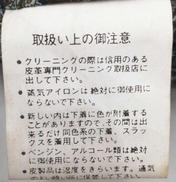 取扱い上の御注意
● クリーニングの際は信用のある
皮革専門クリーニング取扱店に
出して下さい。
● 蒸気アイロンは絶対に御使用に
ならないで下さい。
● 新しい内は下着に色が附着する
ことがありますので、その間は出
来るだけ同色系の下着、スラッ
クスを着用して下さい。
● ベンジン、アルコール類は絶対
に御使用にならないで下さい。
● 皮製品は湿度をきらいます。通気